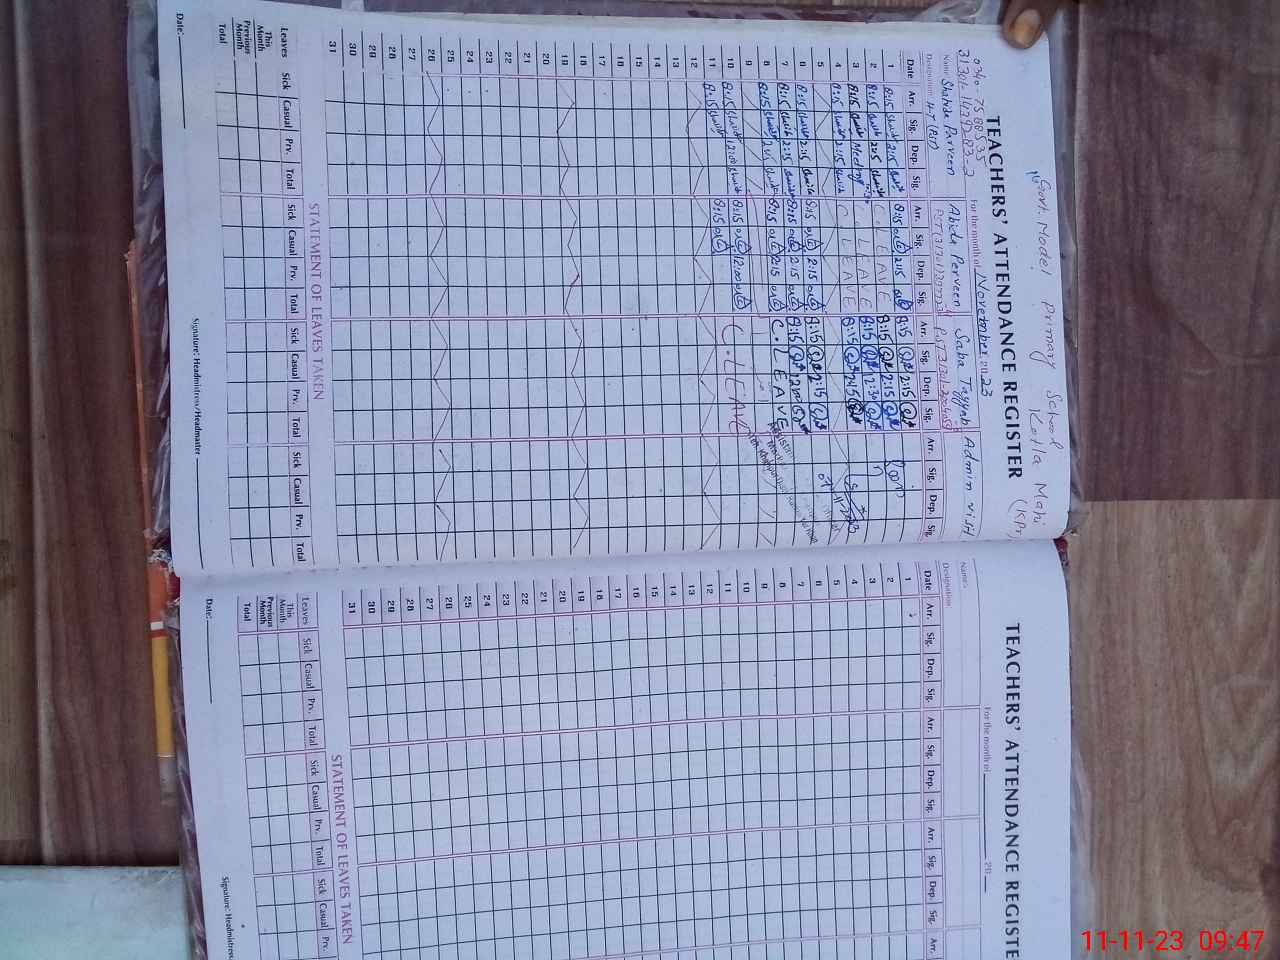 Govt. Model Primary School Kotla Mahi
TEACHERS' ATTENDANCE REGISTER
For the month of November 2023
0340-7588535
Name Shahida Parveen Abida Perveen Saba Tayyab Admin visit
Designation
Date Arr. Sig. Dep. Sig. Arr. Sig. Dep. Sig. Arr. Sig. Dep. Sig. Arr. Sig. Dep. Sig.
1 8:15 2:15 8:15 2:15 8:15 2:15
2 8:15 2:15 C. LEAVE 8:15 2:15
3 8:15 Meeting C. LEAVE 8:15 2:30
4 8:15 2:15 C. LEAVE 8:15 2:15
5
6 8:15 2:15 8:15 2:15 8:15 2:15
7 8:15 2:15 8:15 2:15 8:15
8 8:15 2:15 8:15 2:15 C. LEAVE
9
10 8:15 12:00 8:15 12:00 C. LEAVE
11 8:15 8:15
12
13
14
15
16
17
18
19
20
21
22
23
24
25
26
27
28
29
30
31
STATEMENT OF LEAVES TAKEN
Leaves Sick Casual Prv. Total Sick Casual Prv. Total Sick Casual Prv. Total Sick Casual Prv. Total
This Month
Previous Month
Total
Date: Signature: Headmistress/Headmaster
TEACHERS' ATTENDANCE REGISTE
For the month of 20
Name:
Designation
Date Arr. Sig. Dep. Sig. Arr. Sig. Dep. Sig. Arr. Sig. Dep. Sig. Arr.
1
2
3
4
5
6
7
8
9
10
11
12
13
14
15
16
17
18
19
20
21
22
23
24
25
26
27
28
29
30
31
STATEMENT OF LEAVES TAKEN
Leaves Sick Casual Prv. Total Sick Casual Prv. Total Sick Casual Prv.
This Month
Previous Month
Total
Date: Signature: Headmistress
11-11-23 09:47